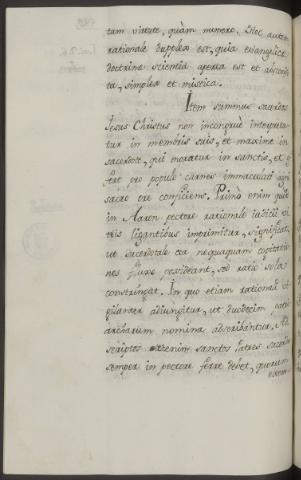 tam virtute, quàm numero. Hoc autem
rationale duplex est, quia evangelicæ
doctrinæ scientia aperta est et abscondi-
ta, simplex et mistica.
Item summus sacerdos
Jesus Christus non incongruè interpreta-
tur in membris suis, et maximè in
sacerdote, qui moratur in sanctis, et of-
fert pro populo carnes immaculati agni
sacro ore conficiens. Primò enim quòd
in Aaron pectore rationale iudicii vi-
ttis ligantibus imprimitur, significat,
ut sacerdotale cor nequaquam cogitatio-
nes fluxæ possideant, sed ratio sola
constringat. In quo etiam rationali vi-
gilanter adiungitur, ut duodecim patri-
archarum nomina adscribantur. Ad-
scriptos etenim sanctos patres sacerdos
semper in pectore ferre debet, quorum